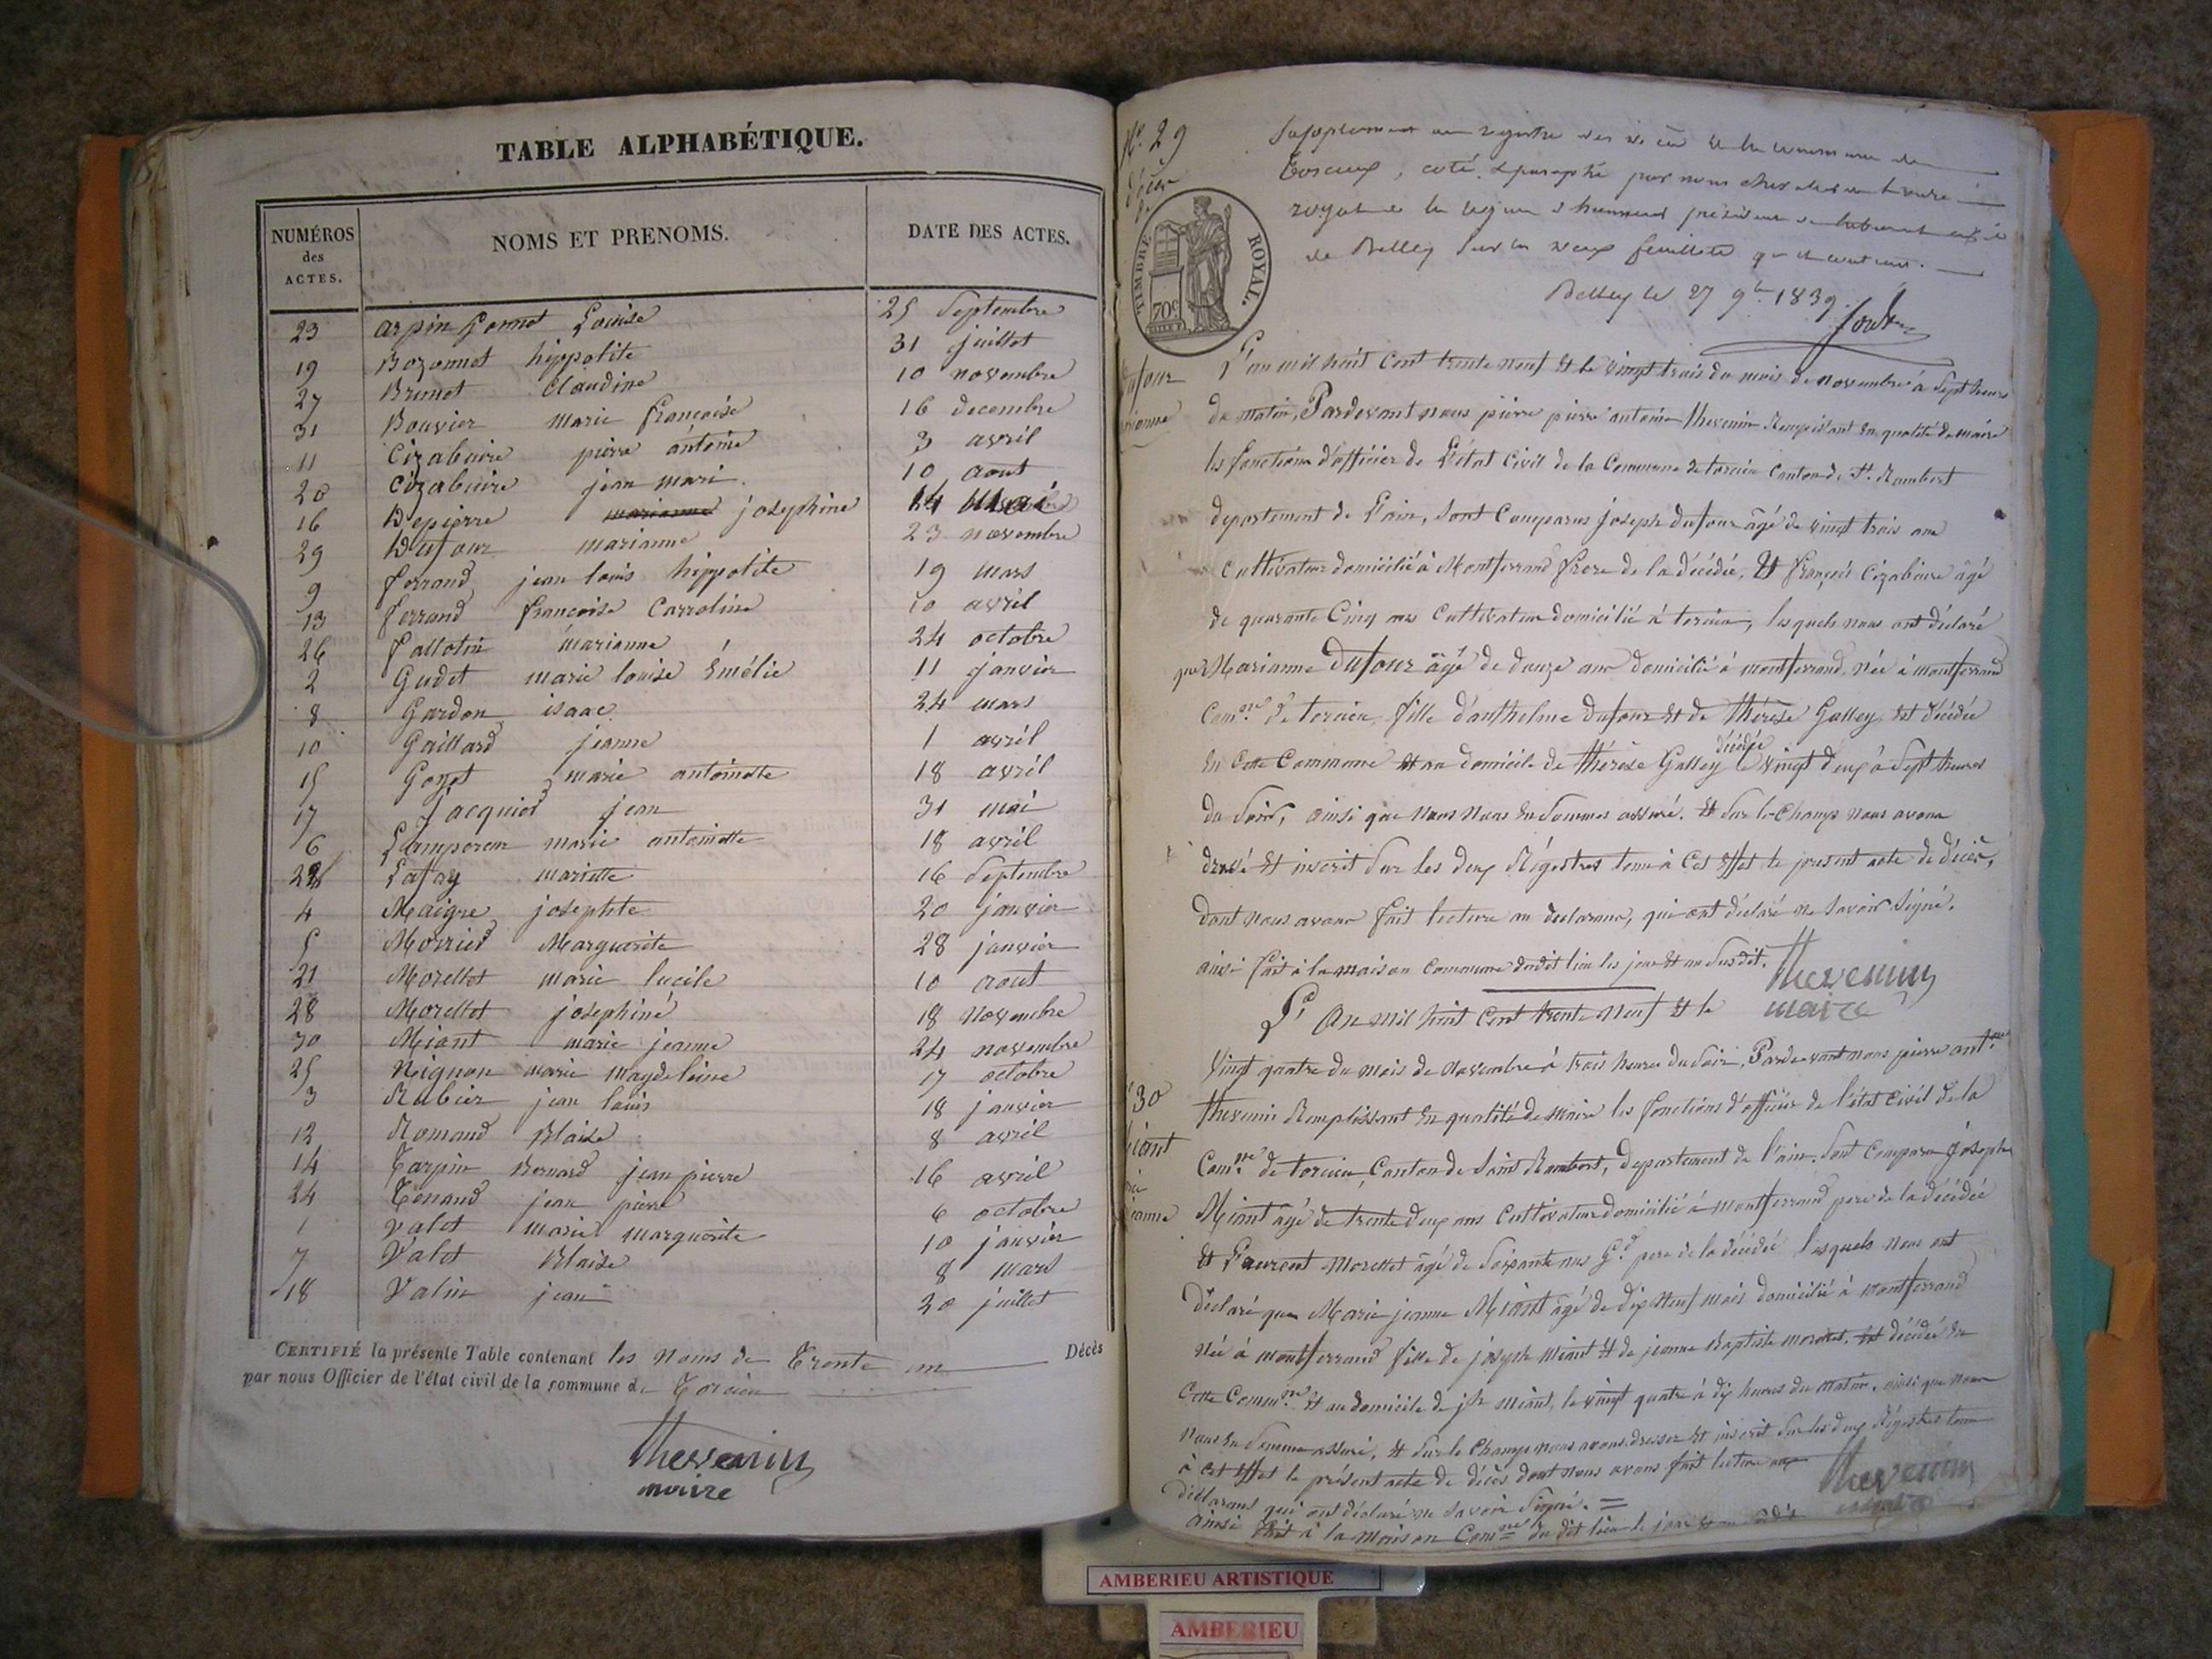 TABLE ALPHABÉTIQUE.
NUMÉROS des ACTES. NOMS ET PRENOMS. DATE DES ACTES.
23 arpin Louise 25 Septembre
19 Bozonnet hippolite 31 juillet
27 Brunet Claudine 10 novembre
31 Bouvier marie françoise 16 decembre
11 Cizabuire pierre antoine 3 avril
20 Cizabuire jean mari 10 aout
16 Depierre marianne josephine 14 mai
29 Dufour marianne 23 novembre
9 ferrand jean louis hippolite 19 mars
13 ferrand françoise Carroline 10 avril
26 fallotin marianne 24 octobre
2 Gudet marie louise Émélie 11 janvier
8 Gardon isaac 24 mars
10 Gaillard jeanne 1 avril
15 Goyet marie antoinette 18 avril
17 Jacquier jean 31 mai
6 Lamperour marie antoinette 18 avril
22 Lafay mariette 16 Septembre
4 Maigre josephte 20 janvier
5 Morrier Marguerite 28 janvier
21 Morellet marie lucile 10 aout
28 Morellet joséphine 18 Novembre
30 Miant marie jeanne 24 novembre
25 Nignon marie magdeleine 17 octobre
3 Rubier jean louis 18 janvier
12 Romand Blaise 8 avril
14 Tarpin Bernard jean pierre 16 avril
24 Tenand jean pierre 6 octobre
1 Valet marie marguerite 10 janvier
7 Valet Blaise 8 mars
18 Valin jean 20 juillet
CERTIFIÉ la présente Table contenant les noms de Trente un Décès
par nous Officier de l'état civil de la commune de Torcieu
Thevenin
maire
N.º 29
décès
de
Dufour
marianne
TIMBRE ROYAL.
70c
Supplement au registre des décès de la commune de
Torcieu, coté & paraphé par nous chevalier de l'ordre
royal de la legion d'honneur président du tribunal civil
de Belley sur les deux feuillets qu'il contient.
Belley le 27 9bre 1839.
L'an mil huit Cent trente neuf et le vingt trois du mois de novembre à Sept heures
du matin, Pardevant nous pierre pierre antoine thevenin Remplissant en qualité de maire
les fonctions d'officier de L'état Civil de la Commune de torcieu Canton de St. Rambert
departement de L'ain, Sont Comparus joseph dufour âgé de vingt trois ans
Cultivateur domicilié à Montferrand frere de la décédée, Et françois Cizabuire âgé
de quarante Cinq ans Cultivateur domicilié à torcieu, lesquels nous ont déclaré
que Marianne Dufour âgé de douze ans domicilié à montferrand, née à montferrand
Comne de torcieu, fille d'anthelme dufour et de thérèse Galley, est décédée
En Cette Commune et au domicile de thérèse Galley décédée le vingt deux à Sept heures
du Soir, ainsi que nous nous en Sommes assuré. Et Sur le-Champ nous avons
dressé et inscrit Sur les deux Régistres tenu à Cet effet le present acte de décès,
dont nous avons fait lecture au declarans, qui ont déclaré ne Savoir Signé.
ainsi fait à la maison Commune dudit lieu les jour et an Susdit.
Thevenin
maire
L' An mil huit Cent trente neuf et le
Vingt quatre du mois de Novembre à trois heures du Soir, Pardevant nous pierre antne
30
Miant
marie
jeanne
thevenin Remplissant En qualité de maire les fonctions d'officier de l'état Civil de la
Comne de torcieu, Canton de Saint Rambert, departement de l'ain. Sont Comparu Joseph
Miant âgé de trente deux ans Cultivateur domicilié à montferrand pere de la décédée
Et Laurent Morellet âgé de Soixante ans Gd pere de la décédée lesquels nous ont
déclaré que Marie jeanne Miant âgé de dix neuf mois domicilié à montferrand
née à montferrand fille de joseph miant Et de jeanne Baptiste morellet, est décédée En
Cette Commne Et au domicile de jh miant, le vingt quatre à dix heures du matin, ainsi que nous
nous En Sommes assuré, Et Sur le Champ nous avons dresser Et inscrit Sur les deux Régistres tenu
à Cet Effet le présent acte de décès dont nous avons fait lecture aux
déclarans qui ont déclaré ne Savoir Signé. =
ainsi fait à la maison Comne du dit lieu le jour et an
Thevenin
AMBERIEU ARTISTIQUE
AMBERIEU